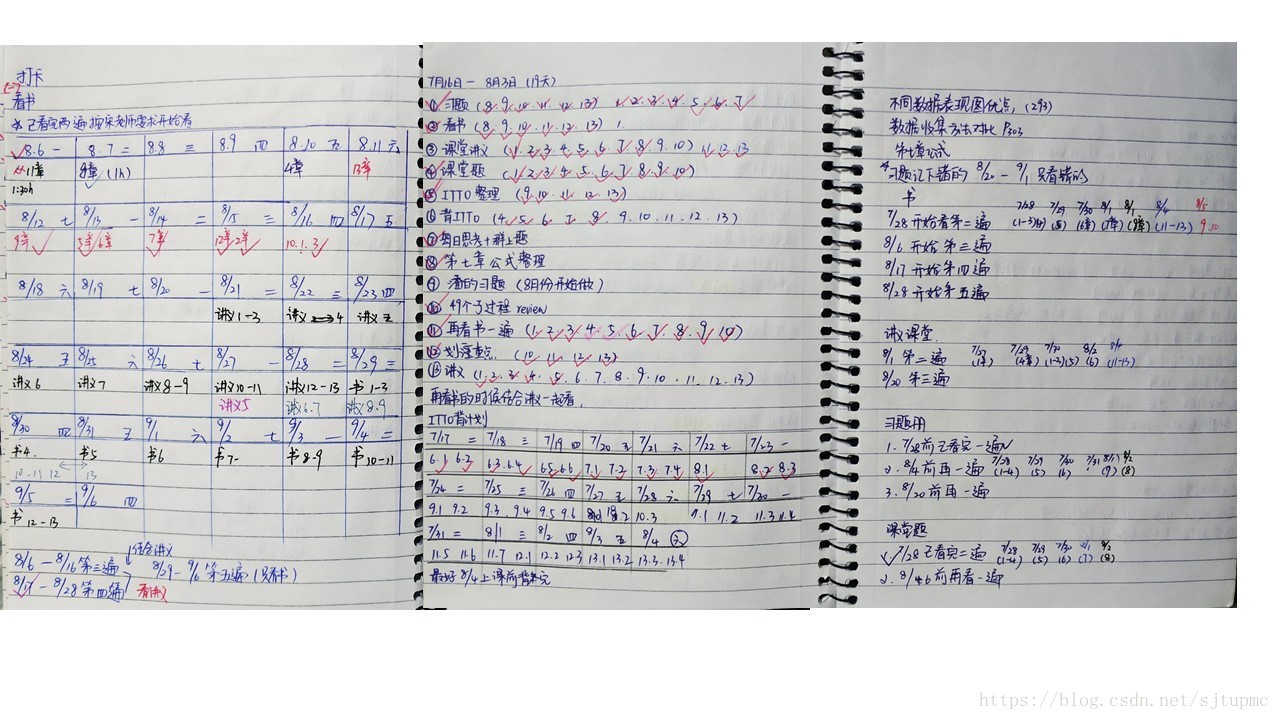 打卡
看书
☆ 已看完两遍,按宋老师要求开始看
8.6 一 8.7 二 8.8 三 8.9 四 8.10 五 8.11 六
11章 8章 (1h) 4章 13章
1:30h
8/12 七 8/13 一 8/14 二 8/15 三 8/16 四 8/17 五
9章 5章/6章 7章 12章 2章 10.1.3
8/18 六 8/19 七 8/20 一 8/21 二 8/22 三 8/23 四
讲义1-3 讲义 4 讲义五
8/24 五 8/25 六 8/26 七 8/27 一 8/28 二 8/29 三
讲义6 讲义7 讲义8-9 讲义10-11 讲义12-13 书1-3
讲义5 讲义6.7 讲义8.9
8/30 四 8/31 五 9/1 六 9/2 七 9/3 一 9/4 二
书4. 书5 书6 书7- 书8-9 书10-11
10.11 12 13
9/5 三 9/6 四
书12-13
结合讲义
8/6 - 8/16 第三遍 8/29 - 9/6 第五遍 (只看书)
8/17 - 8/28 第四遍 看讲义
7月16日一 8月3日 (19天)
① 习题 (8.9.10.11.12.13) 1.2.3.4.5.6.7
② 看书 (8.9.10.11.12.13) 1.
③ 课堂讲义 (1.2.3.4.5.6.7.8.9.10) 11.12.13
④ 课堂题 (1.2.3.4.5.6.7.8.9.10)
⑤ ITTO整理 (9.10.11.12.13)
⑥ 背ITTO (4.5.6.7.8.9.10.11.12.13)
⑦ 每日思考+群上题
⑧ 第七章公式整理
⑨ 的习题 (8月份开始做)
⑩ 49个子过程 review
⑪ 再看书一遍 (1.2.3.4.5.6.7.8.9.10)
⑫ 划重点. (10 11 12 13)
⑬ 讲义 (1.2.3.4.5.6.7.8.9.10.11.12.13)
再看书的时候结合讲义一起看,
ITTO背计划
7/17 二 7/18 三 7/19 四 7/20 五 7/21 六 7/22 七 7/23 一
6.1 6.2 6.3.6.4 6.5.6.6 7.1 7.2 7.3.7.4 8.1 8.2 8.3
7/24 二 7/25 三 7/26 四 7/27 五 7/28 六 7/29 七 7/30 一
9.1 9.2 9.3 9.4 9.5 9.6 10.3 11.2 11.3.11.4
7/31 二 8/1 三 8/2 四 8/3 五 8/4 六
11.5 11.6 11.7 12.1 12.2 12.3 13.1 13.2 13.3.13.4
最好 8/4 上课前背完
不同数据表现图优点, (293)
数据收集方法对比 P303
第七章公式
习题记下错的 8/20 - 9/1 只看错的
书
7/28 7/29 7/30 8/1 8/4 8/5
7/28 开始看第二遍 (1-3) (5) (6章) (7章) (8章) (11-13) 9.10
8/6 开始 第三遍
8/17 开始第四遍
8/28 开始第五遍
讲义课堂
8/1 第二遍 (4章) (1-3)(5) (6) (11-13)
8/20 第三遍
习题册
1. 7/28前已看完一遍
2. 8/4前再一遍 7/28 7/29 7/30 7/31 8/1 8/2
(1-4) (5) (6) (9) (8)
3. 8/20 前再一遍
课堂题
7/28 已看完二遍 7/28 7/29 7/30 8/2
(1-4) (5) (6) (7) (8)
2. 8/4 前再看一遍
https://blog.csdn.net/sjtupmc